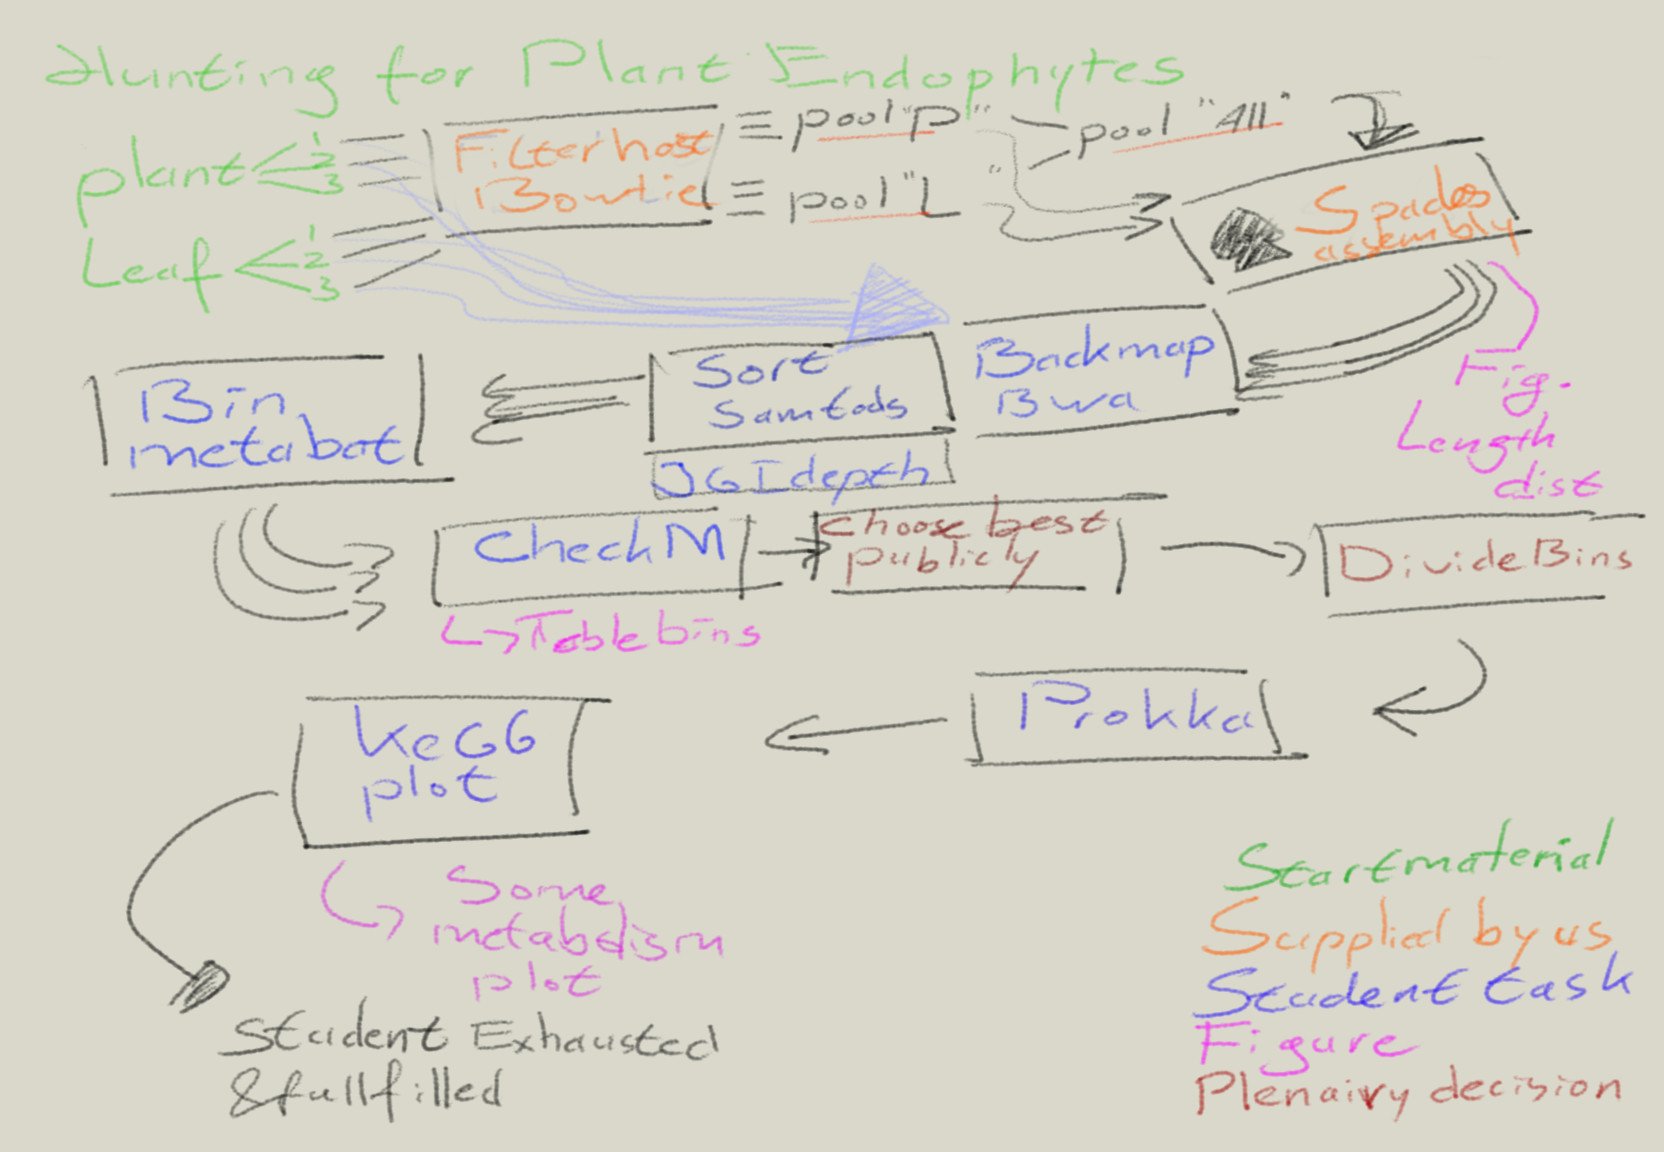 Hunting for Plant Endophytes
plant 1
2
3
Leaf 1
2
3
Filter host
Bowtie
pool "P"
pool "L"
pool "All"
Spades
assembly
Fig.
Length
dist
Backmap
Bwa
Sort
Samtools
JGI depth
Bin
metabat
CheckM
Table bins
choose best
publicly
Divide Bins
Prokka
KeGG
plot
Some
metabolism
plot
Student Exhausted
& fullfilled
Startmaterial
Supplied by us
Student task
Figure
Plenairy decision